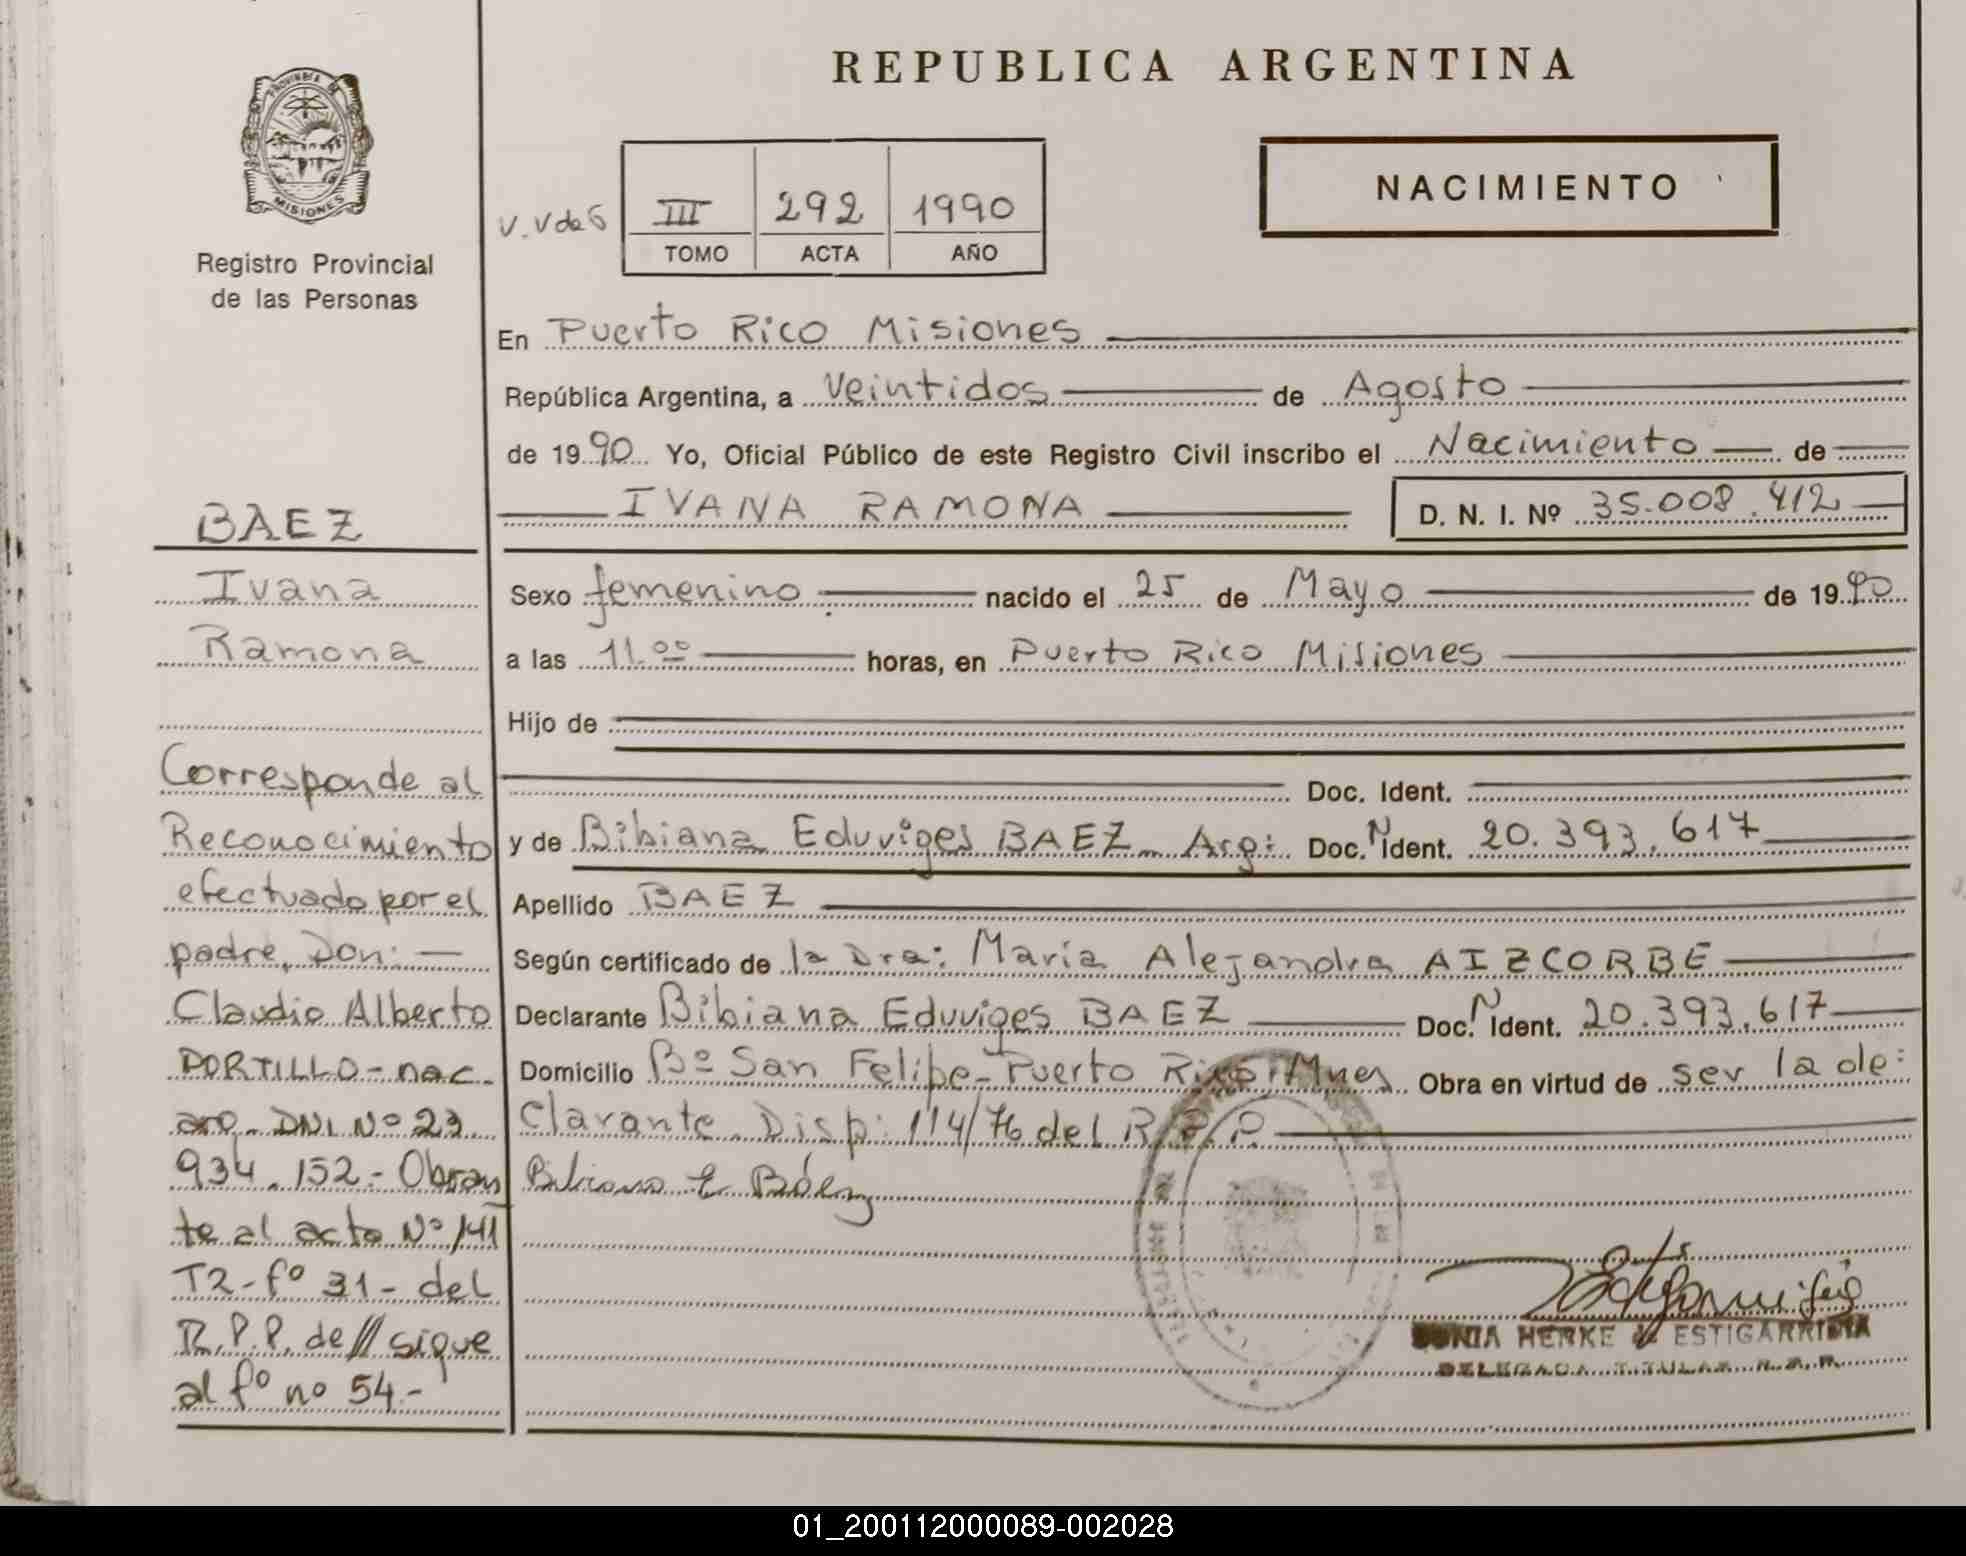 REPUBLICA ARGENTINA
PROVINCIA DE
MISIONES
Registro Provincial
de las Personas
NACIMIENTO
V. V de G
III 292 1990
TOMO ACTA AÑO
En Puerto Rico Misiones
República Argentina, a Veintidos de Agosto
de 1990 Yo, Oficial Público de este Registro Civil inscribo el Nacimiento de
IVANA RAMONA D. N. I. Nº 35.008.412
Sexo femenino nacido el 25 de Mayo de 1990
a las 11.00 horas, en Puerto Rico Misiones
Hijo de
Doc. Ident.
y de Bibiana Eduviges BAEZ Arg: Doc. N Ident. 20.393.617
Apellido BAEZ
Según certificado de la Dra: María Alejandra AIZCORBE
Declarante Bibiana Eduviges BAEZ Doc. N Ident. 20.393.617
Domicilio Bº San Felipe-Puerto Rico Mnes Obra en virtud de ser la de:
clarante. Disp: 114/76 del R.P.P.
Bibiana E Báez
SONIA HERKE de ESTIGARRIBIA
DELEGADA TITULAR R.P.P.
BAEZ
Ivana
Ramona
Corresponde al
Reconocimiento
efectuado por el
padre, Don: —
Claudio Alberto
PORTILLO - nac.
arg. DNI Nº 23.
934.152.- Obran
te al acta Nº 141
T2 - fº 31 - del
R.P.P. de // sigue
al fº nº 54.-
01_200112000089-002028